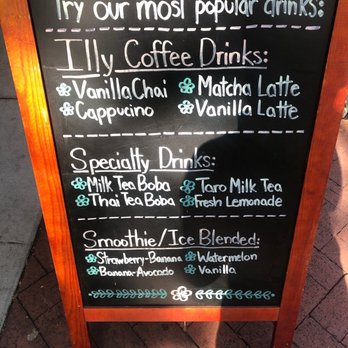 Try our most popular drinks:
Illy Coffee Drinks:
Vanilla Chai Matcha Latte
Cappucino Vanilla Latte
Specialty Drinks:
Milk Tea Boba Taro Milk Tea
Thai Tea Boba Fresh Lemonade
Smoothie/Ice Blended:
Strawberry-Banana Watermelon
Banana-Avocado Vanilla